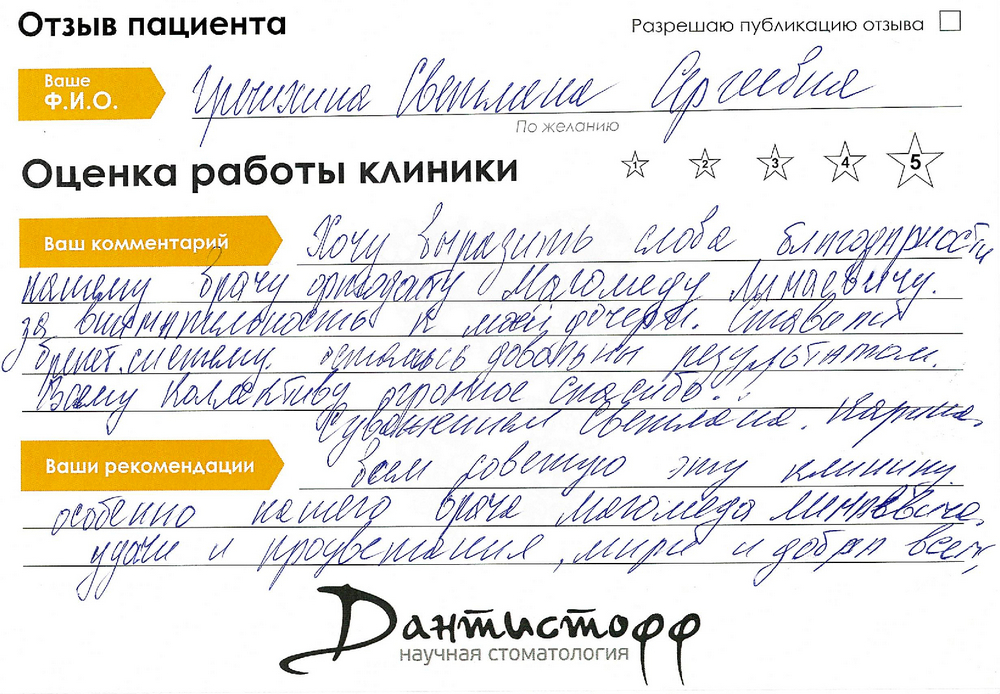 Отзыв пациента
Разрешаю публикацию отзыва
Ваше
Ф.И.О.
Гречихина Светлана Сергеевна
По желанию
Оценка работы клиники
1 2 3 4 5
Ваш комментарий
Хочу выразить слова благодарности
нашему врачу ортодонту Магомеду
за внимательность к моей дочери. Ставили
брекет.систему. остались довольны результатом.
Всему коллективу огромное спасибо!
С уважением Светлана, Карина.
Ваши рекомендации
Всем советую эту клинику
особенно нашего врача Магомеда
удачи и процветания, мира и добра всем,
Дантистофф
научная стоматология